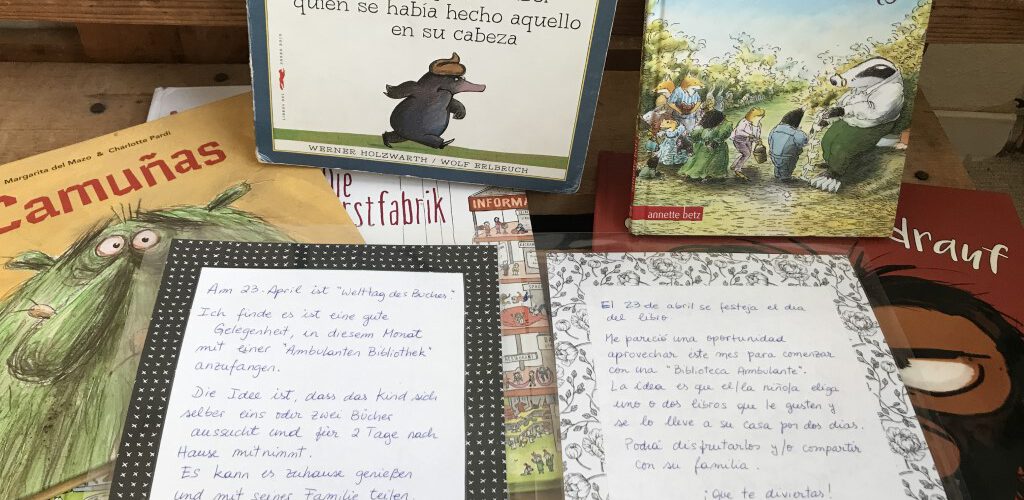 quien se había hecho aquello
en su cabeza
LIBROS DEL ZORRO ROJO
WERNER HOLZWARTH / WOLF ERLBRUCH
annette betz
Margarita del Mazo & Charlotte Pardi
Camuñas
Die
rstfabrik
INFORMA
drauf
Am 23. April ist "Welttag des Buches".
Ich finde es ist eine gute
Gelegenheit, in diesem Monat
mit einer "Ambulanten Bibliothek"
anzufangen.
Die Idee ist, dass das Kind sich
selber eins oder zwei Bücher
aussucht und für 2 Tage nach
Hause mitnimmt.
Es kann es zuhause genießen
und mit seiner Familie teilen.
El 23 de abril se festeja el día
del libro.
Me pareció una oportunidad
aprovechar este mes para comenzar
con una "Biblioteca Ambulante".
La idea es que el/la niño/a eliga
uno o dos libros que le gusten y
se lo lleve a su casa por dos días.
Podrá disfrutarlos y/o compartir
con su familia.
¡Que te diviertas!